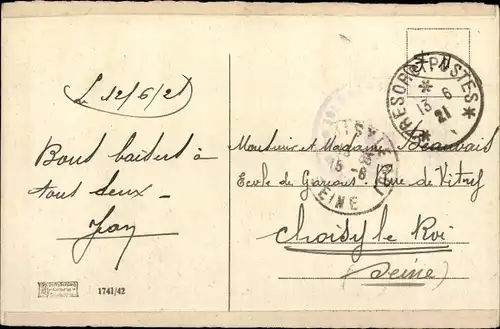 Le 12/6/21
Bons baisers à
tous deux
Jean
TRESOR ET POSTES
13 - 6
21
Monsieur et Madame Beauvais
Ecole de Garçons Rue de Vitry
Choisy le Roi
(Seine)
CHOISY LE ROI
15 - 6
SEINE
1741/42